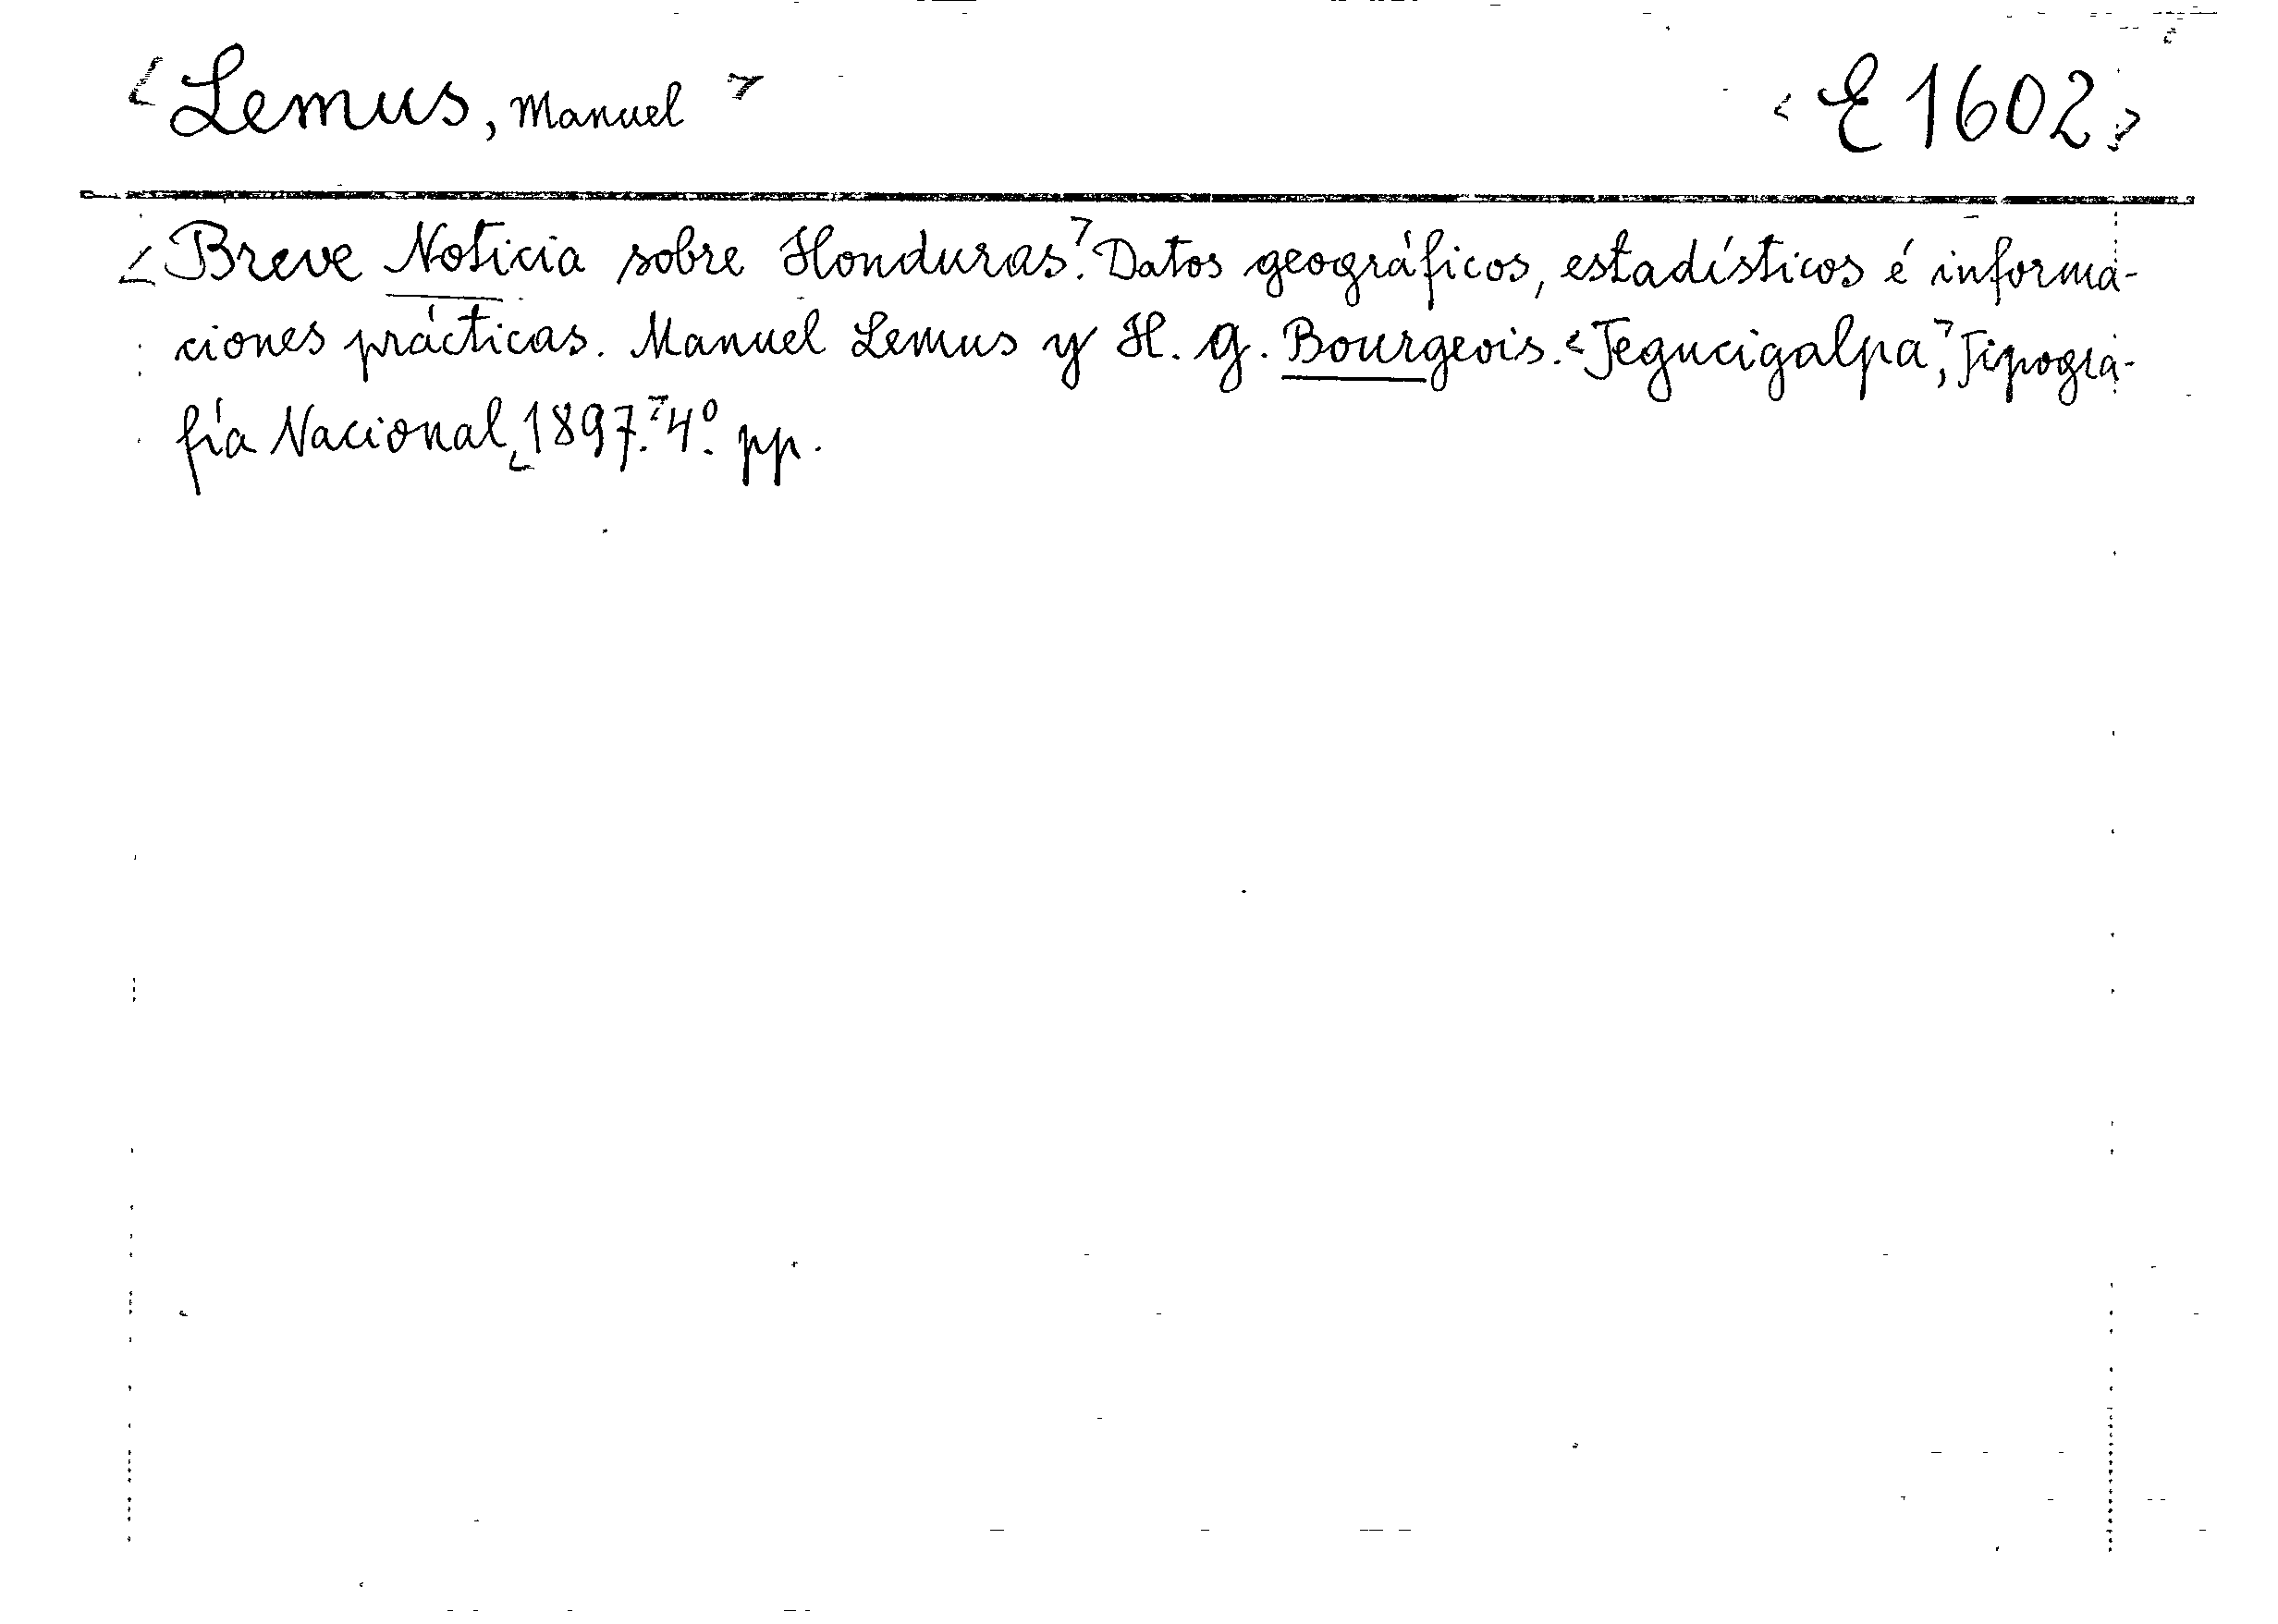 <Lemus, Manuel> <E 1602>
<Breve Noticia sobre Honduras>. Datos geográficos, estadísticos é informa-
ciones prácticas. Manuel Lemus y H. G. Bourgeois. <Tegucigalpa>, Tipogra-
fía Nacional, <1897.> 4º. pp.